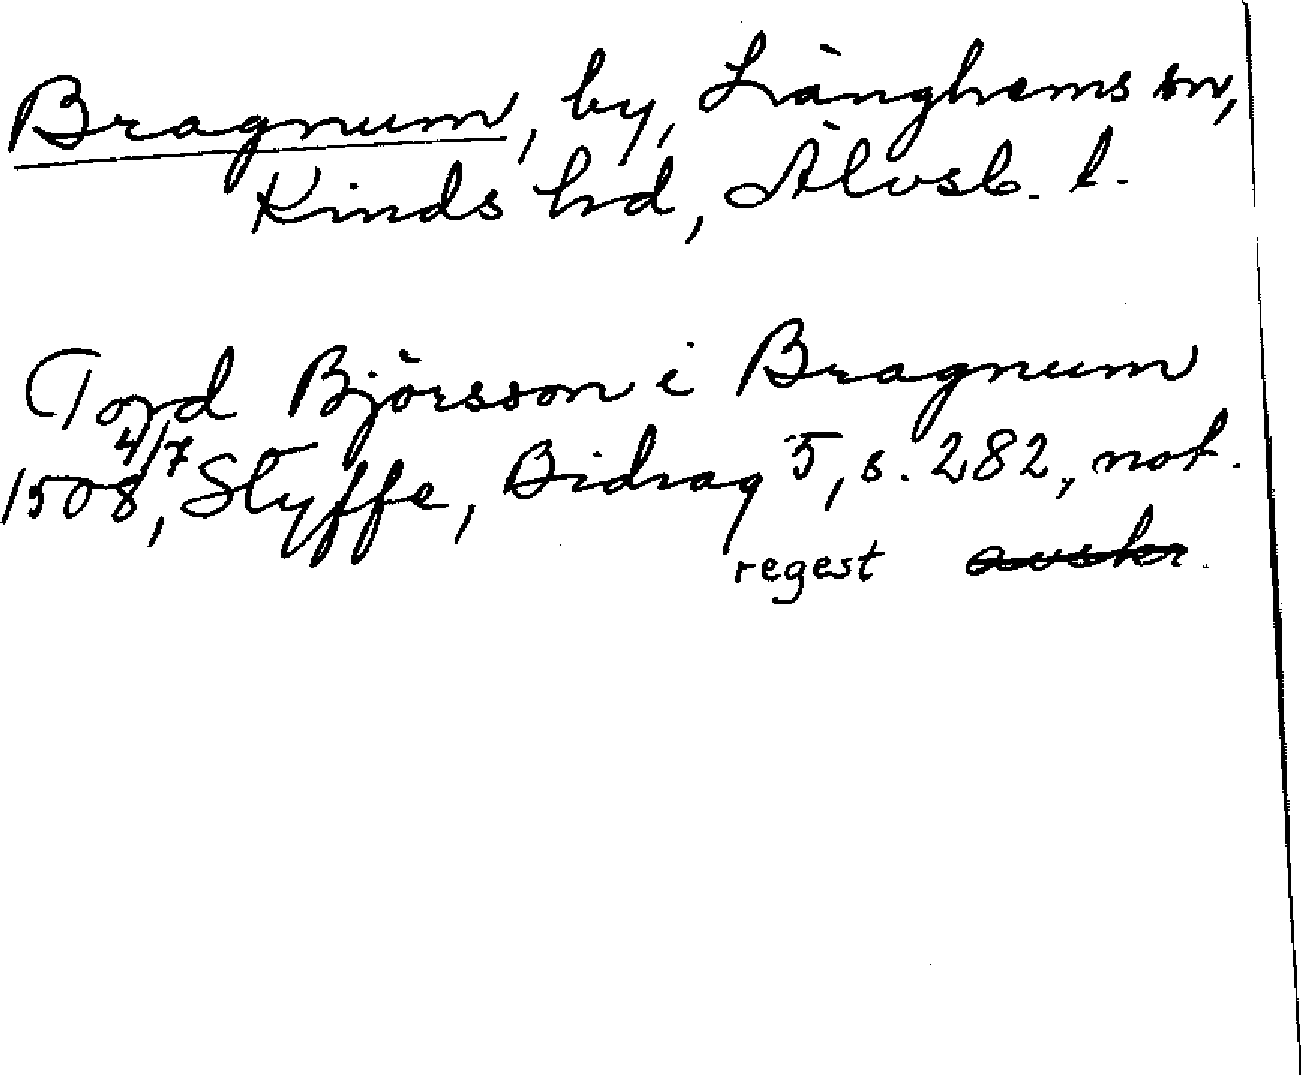 Bragnum, by, Länghems sn,
Kinds hd, Älvsb. l.
Tord Björsson i Bragnum
4/7
1508, Styffe, Bidrag 5, s. 282, not.
regest avskr.